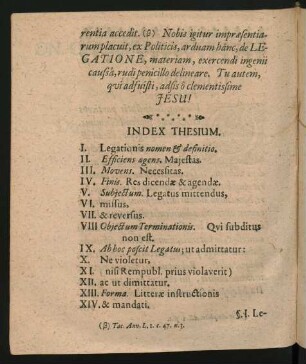 rentia accedit. (β) Nobis igitur impræsentia-
rum placuit, ex Politicis, arduam hânc, de LE-
GATIONE, materiam, exercendi ingenii
causâ, rudi penicillo delineare. Tu autem,
qvi adfuisti, adsis ô clementissime
JESU!
INDEX THESIUM.
I. Legationis nomen & definitio.
II. Efficiens agens. Majestas.
III. Movens. Necessitas.
IV. Finis. Res dicendæ & agendæ.
V. Subjectum. Legatus mittendus,
VI. missus,
VII. & reversus.
VIII Objectum Terminationis. Qvi subditus
non est.
IX. Ab hoc poscit Legatus; ut admittatur:
X. Ne violetur,
XI. nisi Rempubl. prius violaverit)
XII. ac ut dimittatur.
XIII. Forma. Litteræ instructionis
XIV. & mandati.
§. I. Le-
(β) Tac. Ann. L. 1. c. 47. n. 3.